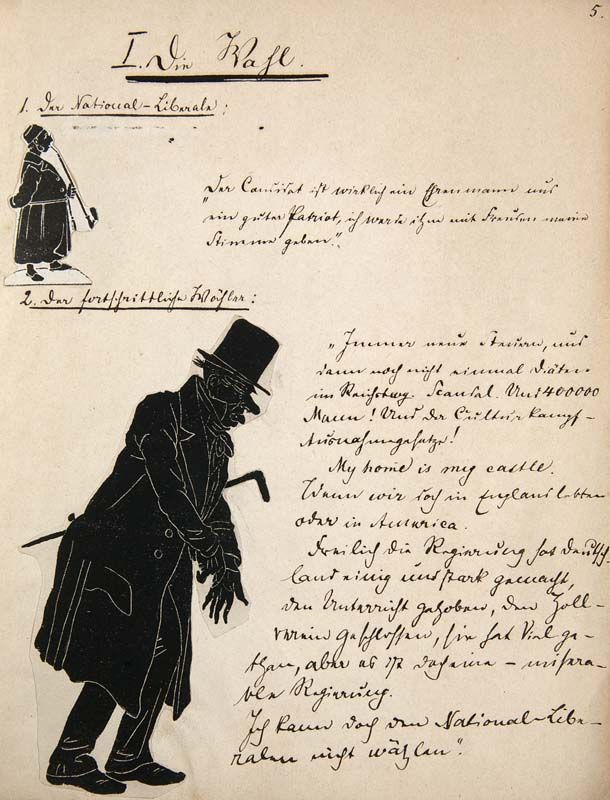 5.
I. Die Wahl.
1. Der National-Liberale:
„Der Candidat ist wirklich ein Ehrenmann und
ein guter Patriot, ich werde ihm mit Freuden meine
Stimme geben."
2. Der fortschrittliche Wähler:
„Immer neue Steuern, und
dann noch nicht einmal Diäten
im Reichstag. Scandal. Und 400000
Mann! Und der Culturkampf-
Ausnahmegesetze!
My home is my castle.
Wenn wir doch in England lebten
oder in America.
Freilich die Regierung hat Deutsch-
land einig und stark gemacht,
den Unterricht gehoben, den Zoll-
verein geschlossen, sie hat Viel ge-
than, aber es ist doch eine – misera-
ble Regierung.
Ich kann doch den National-Libe-
ralen nicht wählen".